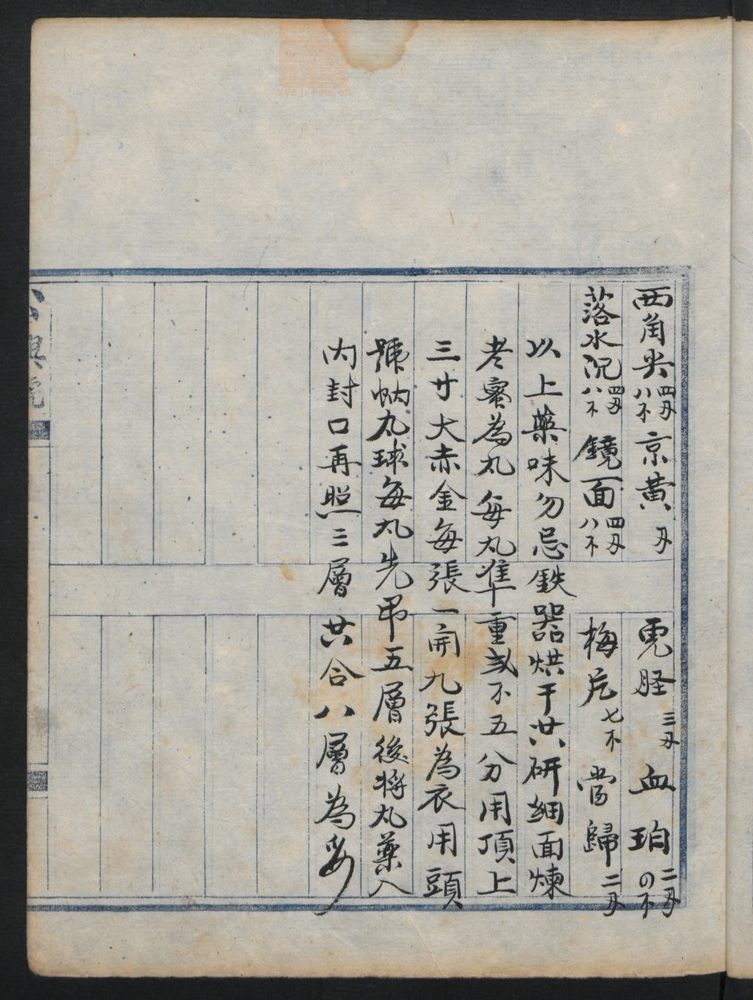 西角尖四刄八不京黄刄虎胫三刄血珀二刄の不
落水沉四刄八不鏡面四刄八不梅片七不當歸二刄
以上藥味勿忌鉄器烘干共研細面煉
老蜜為丸每丸準重弍不五分用頂上
三廿大赤金每張一開九張為衣用頭
號蚋丸球每丸先吊五層後將丸藥入
內封口再照三層共合八層為妥